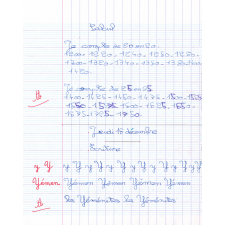 Calcul
Je compte de 20 en 20
1200 - 1220 - 1240 - 1260 - 1280 -
1300 - 1320 - 1340 - 1360 - 1380 1400
1420
Je compte de 25 en 25
1400 - 1425 - 1450 - 1475 - 1500 - 1525
1550 - 1575 - 1600 - 1625 - 1650 -
1675 - 1725 - 1750
Jeudi 15 décembre
Ecriture
y Y y Y y Y y Y y Y y Y
Yémen Yémen Yémen Yémen Yémen
les Yéménites les Yéménites